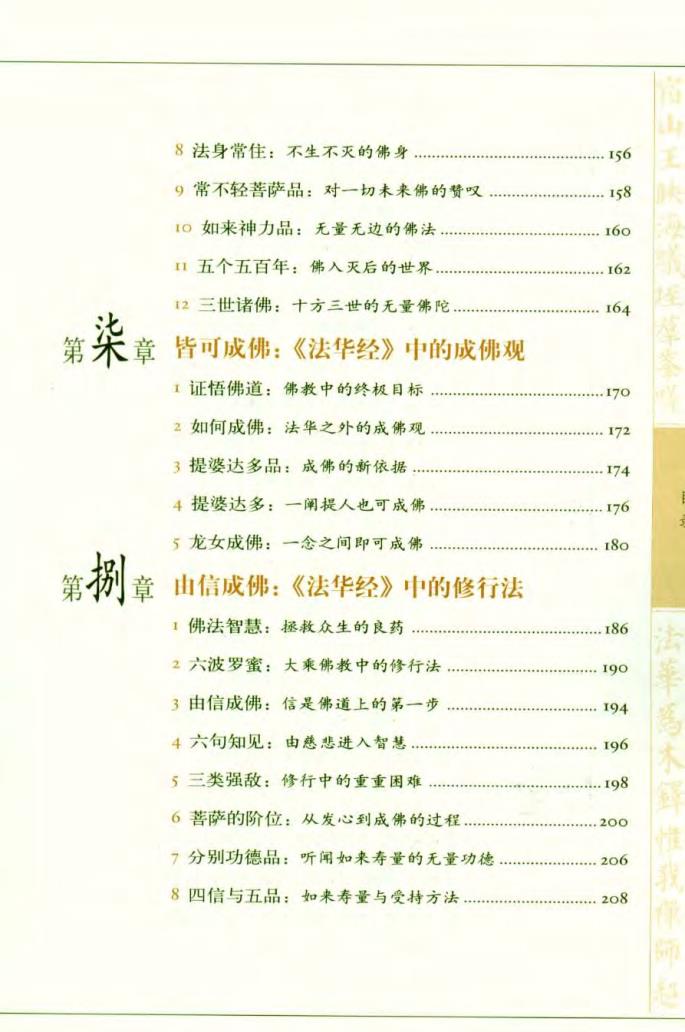 8 法身常住：不生不灭的佛身 ........ 156
9 常不轻菩萨品：对一切未来佛的赞叹 ........ 158
10 如来神力品：无量无边的佛法 ........ 160
11 五个五百年：佛入灭后的世界 ........ 162
12 三世诸佛：十方三世的无量佛陀 ........ 164
第柒章 皆可成佛：《法华经》中的成佛观
1 证悟佛道：佛教中的终极目标 ........ 170
2 如何成佛：法华之外的成佛观 ........ 172
3 提婆达多品：成佛的新依据 ........ 174
4 提婆达多：一阐提人也可成佛 ........ 176
5 龙女成佛：一念之间即可成佛 ........ 180
第捌章 由信成佛：《法华经》中的修行法
1 佛法智慧：拯救众生的良药 ........ 186
2 六波罗蜜：大乘佛教中的修行法 ........ 190
3 由信成佛：信是佛道上的第一步 ........ 194
4 六句知见：由慈悲进入智慧 ........ 196
5 三类强敌：修行中的重重困难 ........ 198
6 菩萨的阶位：从发心到成佛的过程 ........ 200
7 分别功德品：听闻如来寿量的无量功德 ........ 206
8 四信与五品：如来寿量与受持方法 ........ 208
法華為木鐸惟我
師起